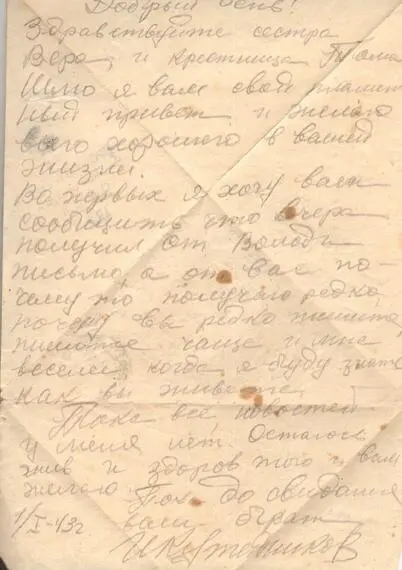 Добрый день!
Здравствуйте сестра
Вера, и крестница Тома
Шлю я вам свой пламен
ный привет и желаю
всего хорошего в вашей
жизни.
Во первых я хочу вам
сообщить что вчера
получил от Володи
письмо, а от вас по-
чему то получаю редко,
почему вы редко пишите,
пишите чаще и мне
веселей когда я буду знать
как вы живете.
Пока все новостей
у меня нет. Остаюсь
жив и здоров того и вам
желаю Пок до свидания
1/I-43г ваш брат